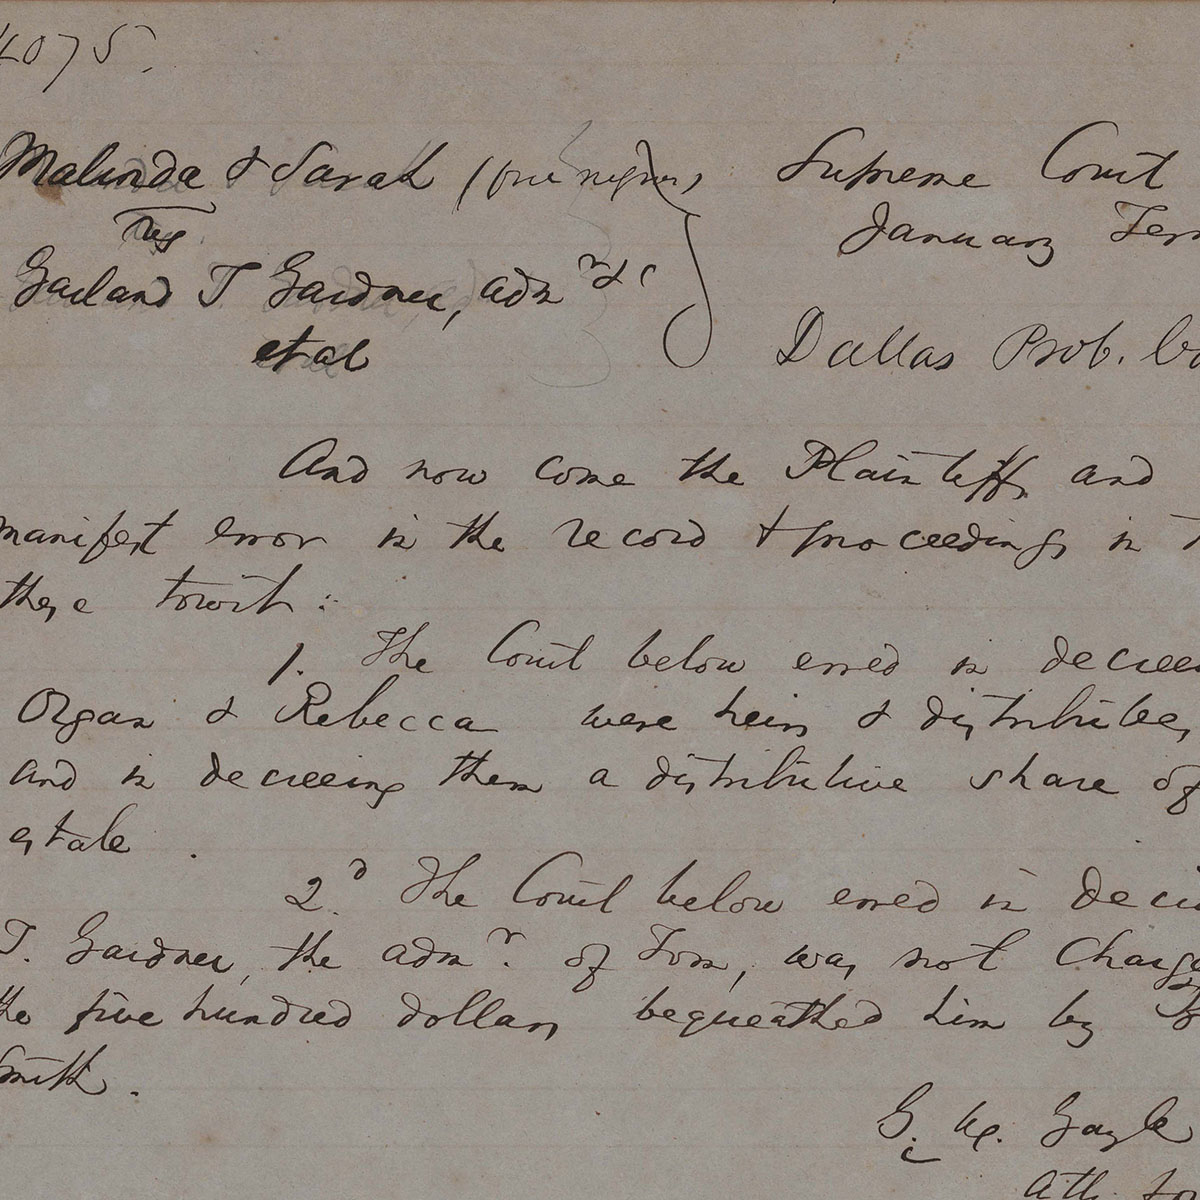 4075.
Malinda & Sarah (free negroes) Supreme Court
vs January Ter
Garland T Gardner, admr &c
et al Dallas Prob. Co
And now come the Plaintiffs and
manifest error in the record & proceedings in
these towit:
1. The Court below erred in decree
Organ & Rebecca were heirs & distributees
and in decreeing them a distributive share of
estate.
2d The Court below erred in deci
T. Gardner, the admr. of Tom, was not Charge
the five hundred dollars bequeathed him by
Smith.
G. W. Gayle
Atty for